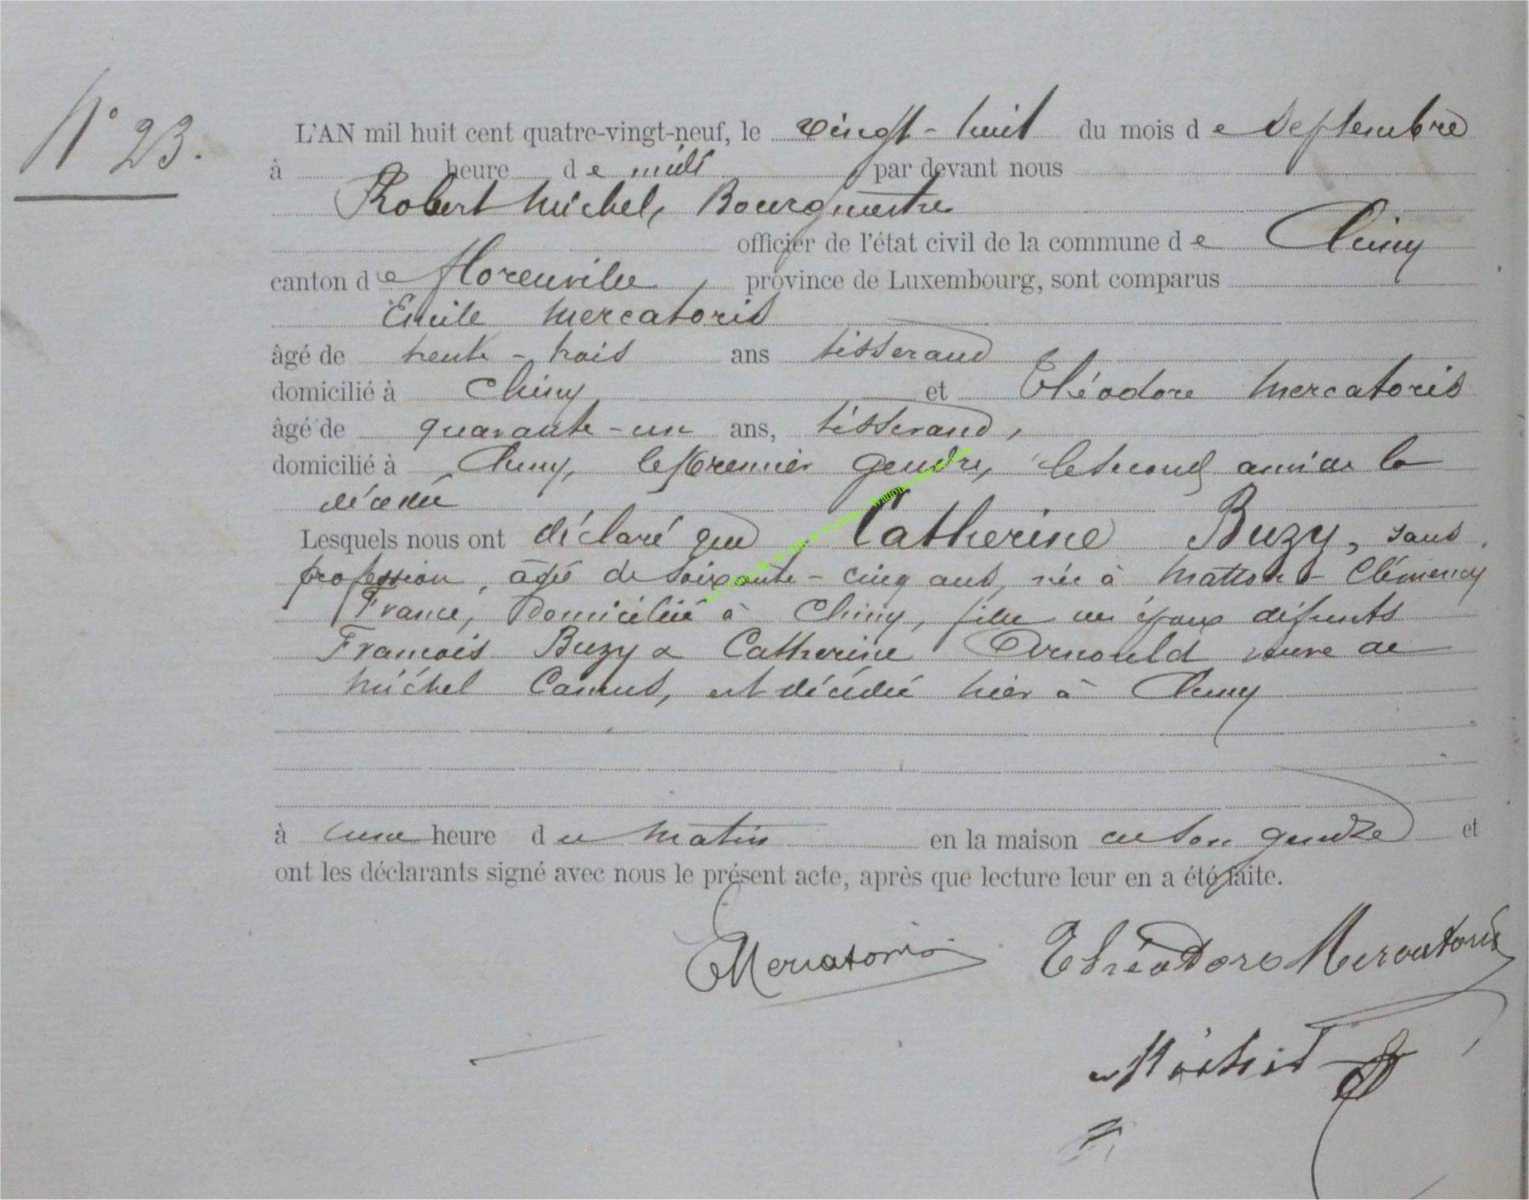 N° 23.
L'AN mil huit cent quatre-vingt-neuf, le vingt-huit du mois de Septembre
à heure de midi par devant nous
Robert Michel, Bourgmestre
officier de l'état civil de la commune de Chiny
canton de Florenville, province de Luxembourg, sont comparus
Emile Mercatoris
âgé de trente-trois ans tisserand
domicilié à Chiny et Théodore Mercatoris
âgé de quarante-un ans, tisserand,
domicilié à Chiny, le premier gendre, le second ami de la
décédée
Lesquels nous ont déclaré que Catherine Buzy, sans
profession, âgée de soixante-cinq ans, née à Matton-Clémency
France, domiciliée à Chiny, fille des époux défunts
François Buzy & Catherine Arnould veuve de
Michel Camus, est décédée hier à Chiny
à une heure du matin en la maison de son gendre et
ont les déclarants signé avec nous le présent acte, après que lecture leur en a été faite.
EMercatoris Théodore Mercatoris